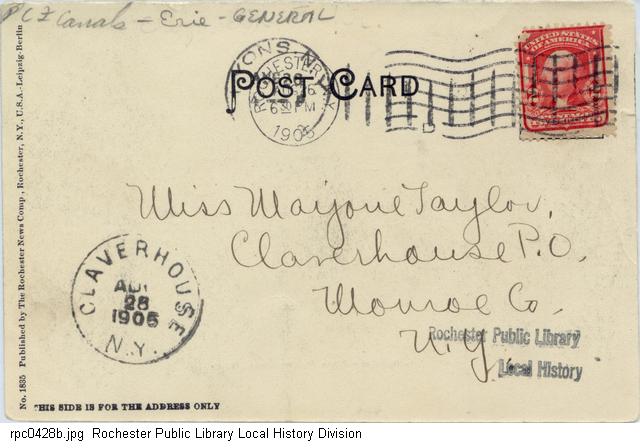 PCZ Canals - Erie - GENERAL
LYONS, N.Y.
ROCHESTER, N.Y.
6 PM
1905
POST CARD
UNITED STATES
OF AMERICA
Miss Marjorie Taylor,
Claverhouse P.O.
Monroe Co.
N.Y.
CLAVERHOUSE
AUG
28
1905
N.Y.
Rochester Public Library
Local History
No. 1835 Published by The Rochester News Comp., Rochester, N.Y., U.S.A.-Leipzig-Berlin
THIS SIDE IS FOR THE ADDRESS ONLY
rpc0428b.jpg Rochester Public Library Local History Division